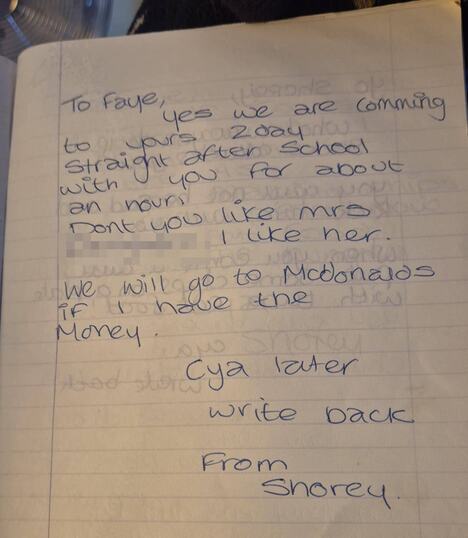 To Faye,
yes we are comming
to yours 2day
straight after school
with you for about
an hour!
Dont you like mrs
I like her.
We will go to Mcdonalds
if I have the
Money.
Cya later
write back
From
Shorey.